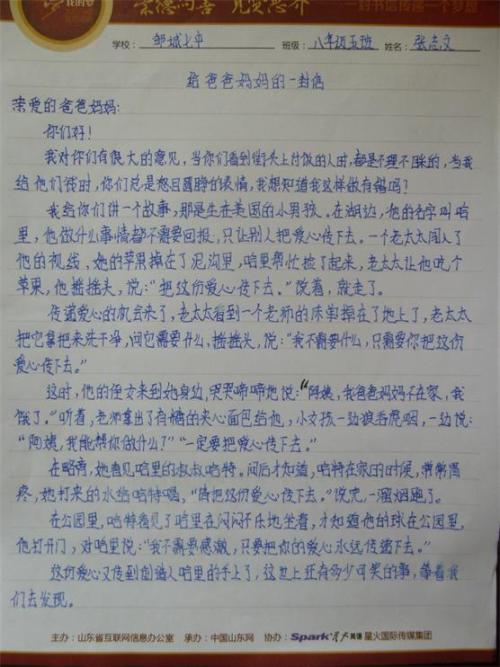 崇德向善 见贤思齐
封书信传递一个梦想
学校: 邹城七中 班级: 八年级五班 姓名: 张志文
给爸爸妈妈的一封信
亲爱的爸爸妈妈:
你们好!
我对你们有很大的意见,当你们看到街头上讨饭的人时,都是不理不睬的,当我
给他们钱时,你们总是怒目圆睁的表情,我想知道我这样做有错吗?
我给你们讲一个故事,那是生在美国的小男孩。在湖边,他的名字叫哈
里,他做什么事情都不需要回报,只让别人把爱心传下去。一个老太太闯入了
他的视线、她的苹果掉在了泥沟里,哈里帮忙捡了起来,老太太让他吃个
苹果,他摇摇头,说:“把这份爱心传下去。”说着,就走了。
传递爱心的机会来了,老太太看到一个老师的床单掉在了地上了,老太太
把它拿起来洗干净,问它需要什么,摇摇头,说:“我不需要什么,只需要你把这份
爱心传下去。”
这时,他的侄女来到她身边,哭哭啼啼地说:“阿姨,我爸爸妈妈不在家,我
饿了。”听着,老师拿出了有糖的夹心面包给她,小女孩一边狼吞虎咽,一边说:
“阿姨,我能帮你做什么?”“一定要把爱心传下去。”
在路旁,她看见哈里的叔叔哈特。问后才知道,哈特在家的时候,常常胃
疼,她打来的水给哈特喝,“请把这份爱心传下去。”说完,一溜烟跑了。
在公园里,哈特看见了哈里在闷闷不乐地坐着,才知道他的球在公园里,
他打开门,对哈里说:“我不需要感激,只要把你的爱心永远传递下去。”
这份爱心又传到创造人哈里的手上了,这世上还有多少可笑的事,等着我
们去发现。
主办:山东省互联网信息办公室 承办:中国山东网 协办:Spark 星火国际传媒集团